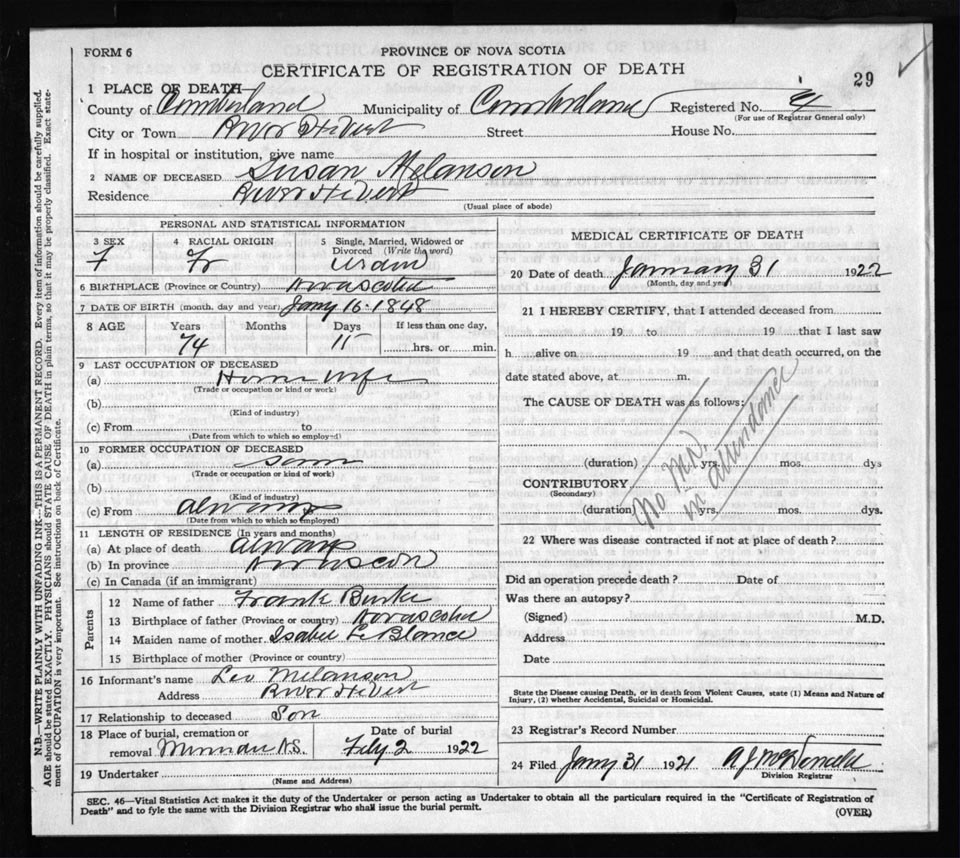 FORM 6
PROVINCE OF NOVA SCOTIA
CERTIFICATE OF REGISTRATION OF DEATH
29
1 PLACE OF DEATH—
County of Cumberland Municipality of Cumberland Registered No. 4
(For use of Registrar General only)
City or Town River Hebert Street House No.
If in hospital or institution, give name
2 NAME OF DECEASED Susan Melanson
Residence River Hebert
(Usual place of abode)
PERSONAL AND STATISTICAL INFORMATION
3 SEX 4 RACIAL ORIGIN 5 Single, Married, Widowed or Divorced (Write the word)
F Fr
6 BIRTHPLACE (Province or Country) Novascotia
7 DATE OF BIRTH (month, day and year) Jany 16-1848
8 AGE Years Months Days If less than one day,
74 15 hrs. or min.
9 LAST OCCUPATION OF DECEASED
(a) House wife
(Trade or occupation or kind of work)
(b)
(Kind of industry)
(c) From to
(Date from which to which so employed)
10 FORMER OCCUPATION OF DECEASED
(a) Same
(Trade or occupation or kind of work)
(b)
(Kind of industry)
(c) From always
(Date from which to which so employed)
11 LENGTH OF RESIDENCE (In years and months)
(a) At place of death always
(b) In province
(c) In Canada (if an immigrant)
Parents
12 Name of father Frank Burke
13 Birthplace of father (Province or country) Novascotia
14 Maiden name of mother Isabel Le Blance
15 Birthplace of mother (Province or country)
16 Informant's name Leo Melanson
Address River Hebert
17 Relationship to deceased Son
18 Place of burial, cremation or removal Minudie N.S. Date of burial Feby 2 1922
19 Undertaker
(Name and Address)
MEDICAL CERTIFICATE OF DEATH
20 Date of death January 31 1922
(Month, day and year)
21 I HEREBY CERTIFY, that I attended deceased from
19 to 19 that I last saw
h alive on 19 and that death occurred, on the
date stated above, at m.
The CAUSE OF DEATH was as follows:
No M.D.
in attendance
(duration) yrs. mos. dys
CONTRIBUTORY
(Secondary)
(duration) yrs. mos. dys.
22 Where was disease contracted if not at place of death?
Did an operation precede death? Date of
Was there an autopsy?
(Signed) M.D.
Address
Date
State the Disease causing Death, or in death from Violent Causes, state (1) Means and Nature of
Injury, (2) whether Accidental, Suicidal or Homicidal.
23 Registrar's Record Number
24 Filed Jany 31 1921 A J McDonald
Division Registrar
SEC. 46—Vital Statistics Act makes it the duty of the Undertaker or person acting as Undertaker to obtain all the particulars required in the "Certificate of Registration of
Death" and to fyle the same with the Division Registrar who shall issue the burial permit.
(OVER)
N.B.—WRITE PLAINLY WITH UNFADING INK—THIS IS A PERMANENT RECORD. Every item of information should be carefully supplied.
AGE should be stated EXACTLY. PHYSICIANS should STATE CAUSE OF DEATH in plain terms, so that it may be properly classified. Exact statement of OCCUPATION is very important. See instructions on back of Certificate.